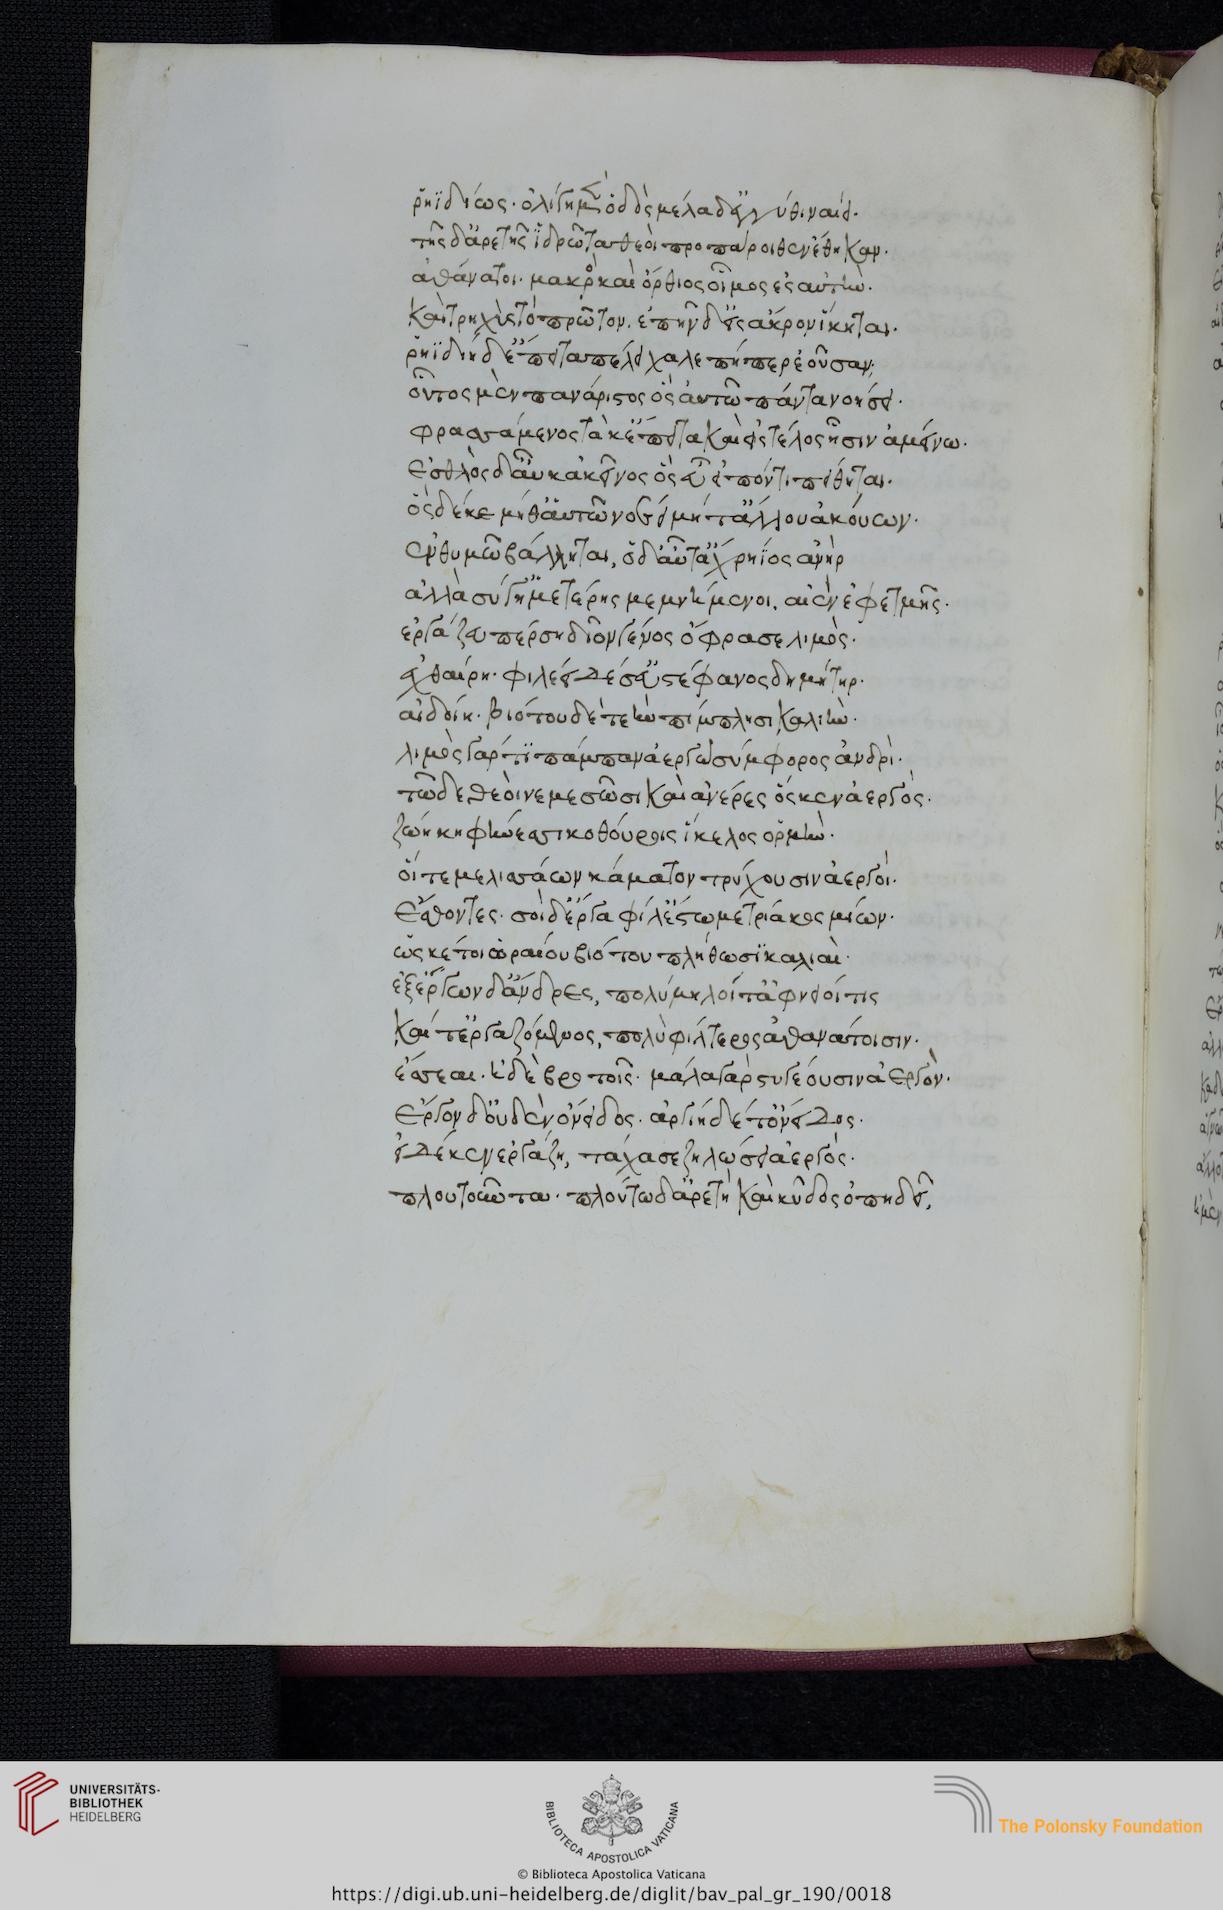 ῥηϊδίως· ὀλίγη μὲν ὁδὸς μέλα δ' ἐγγύθι ναίει·
τῆς δ' ἀρετῆς ἱδρῶτα θεοὶ προπάροιθεν ἔθηκαν·
ἀθάνατοι· μακρὸς καὶ ὄρθιος οἶμος ἐς αὐτὴν·
καὶ τρηχὺς τὸ πρῶτον. ἐπὴν δ' εἰς ἄκρον ἵκηται·
ῥηϊδίη δ' ἔπειτα πέλει χαλεπή περ ἐοῦσαν·
οὗτος μὲν πανάριστος ὃς αὐτῶ πάντα νοήσει·
φρασσάμενος τά κ' ἔπειτα καὶ εἰς τέλος ἦσιν ἀμείνω·
ἐσθλὸς δ' αὖ κακεῖνος ὃς εὖ εἰπόντι πείθηται·
ὃς δέ κε μήθ' αὑτῶ νοέει μήτ' ἄλλου ἀκούων·
ἐν θυμῶ βάλληται, ὁ δ' αὖτ' ἀχρήϊος ἀνὴρ
ἀλλὰ σύ γ' ἡμετέρης μεμνημένοι. αἰὲν ἐφετμῆς·
ἐργάζευ πέρση δῖον γένος ὄφρα σε λιμὸς·
ἐχθαίρη· φιλέει δέ σ' εὐστέφανος δημήτηρ·
αἰδοίη· βιότου δὲ τεὴν πίμπλησι καλιὴν·
λιμὸς γάρ τοι πάμπαν ἀεργῶ σύμφορος ἀνδρὶ·
τῶ δὲ θεοὶ νεμεσῶσι καὶ ἀνέρες ὅς κεν ἀεργὸς·
ζώη κηφήνεσσι κοθούροις ἴκελος ὁρμὴν·
οἵ τε μελισσάων κάματον τρύχουσιν ἀεργοὶ·
ἔσθοντες· σοὶ δ' ἔργα φίλ' ἔστω μέτρια κοσμεῖν·
ὥς κέ τοι ὡραίου βιότου πλήθωσι καλιαὶ·
ἐξ ἔργων δ' ἄνδρες, πολύμηλοί τ' ἀφνειοί τις
καί τ' ἐργαζόμενος, πολὺ φίλτερος ἀθανάτοισιν·
ἔσσεαι· ἠδὲ βροτοῖς· μάλα γὰρ στυγέουσιν ἀεργὸν·
ἔργον δ' οὐδὲν ὄνειδος· ἀεργίη δέ τ' ὄνειδος·
εἰ δέ κεν ἐργάζη, τάχα σε ζηλώσει ἀεργὸς·
πλουτοῦντα· πλούτω δ' ἀρετὴ καὶ κῦδος ὀπηδεῖ,
UNIVERSITÄTS-
BIBLIOTHEK
HEIDELBERG
BIBLIOTECA APOSTOLICA VATICANA
The Polonsky Foundation
© Biblioteca Apostolica Vaticana
https://digi.ub.uni-heidelberg.de/diglit/bav_pal_gr_190/0018